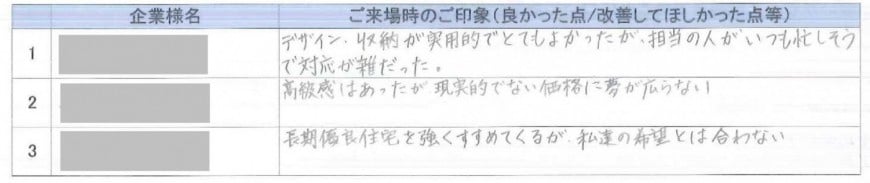 企業様名 ご来場時のご印象(良かった点/改善してほしかった点等)
1 デザイン、収納が実用的でとてもよかったが、担当の人がいつも忙しそう
で対応が雑だった。
2 高級感はあったが、現実的でない価格に夢が広らない
3 長期優良住宅を強くすすめてくるが、私達の希望とは合わない